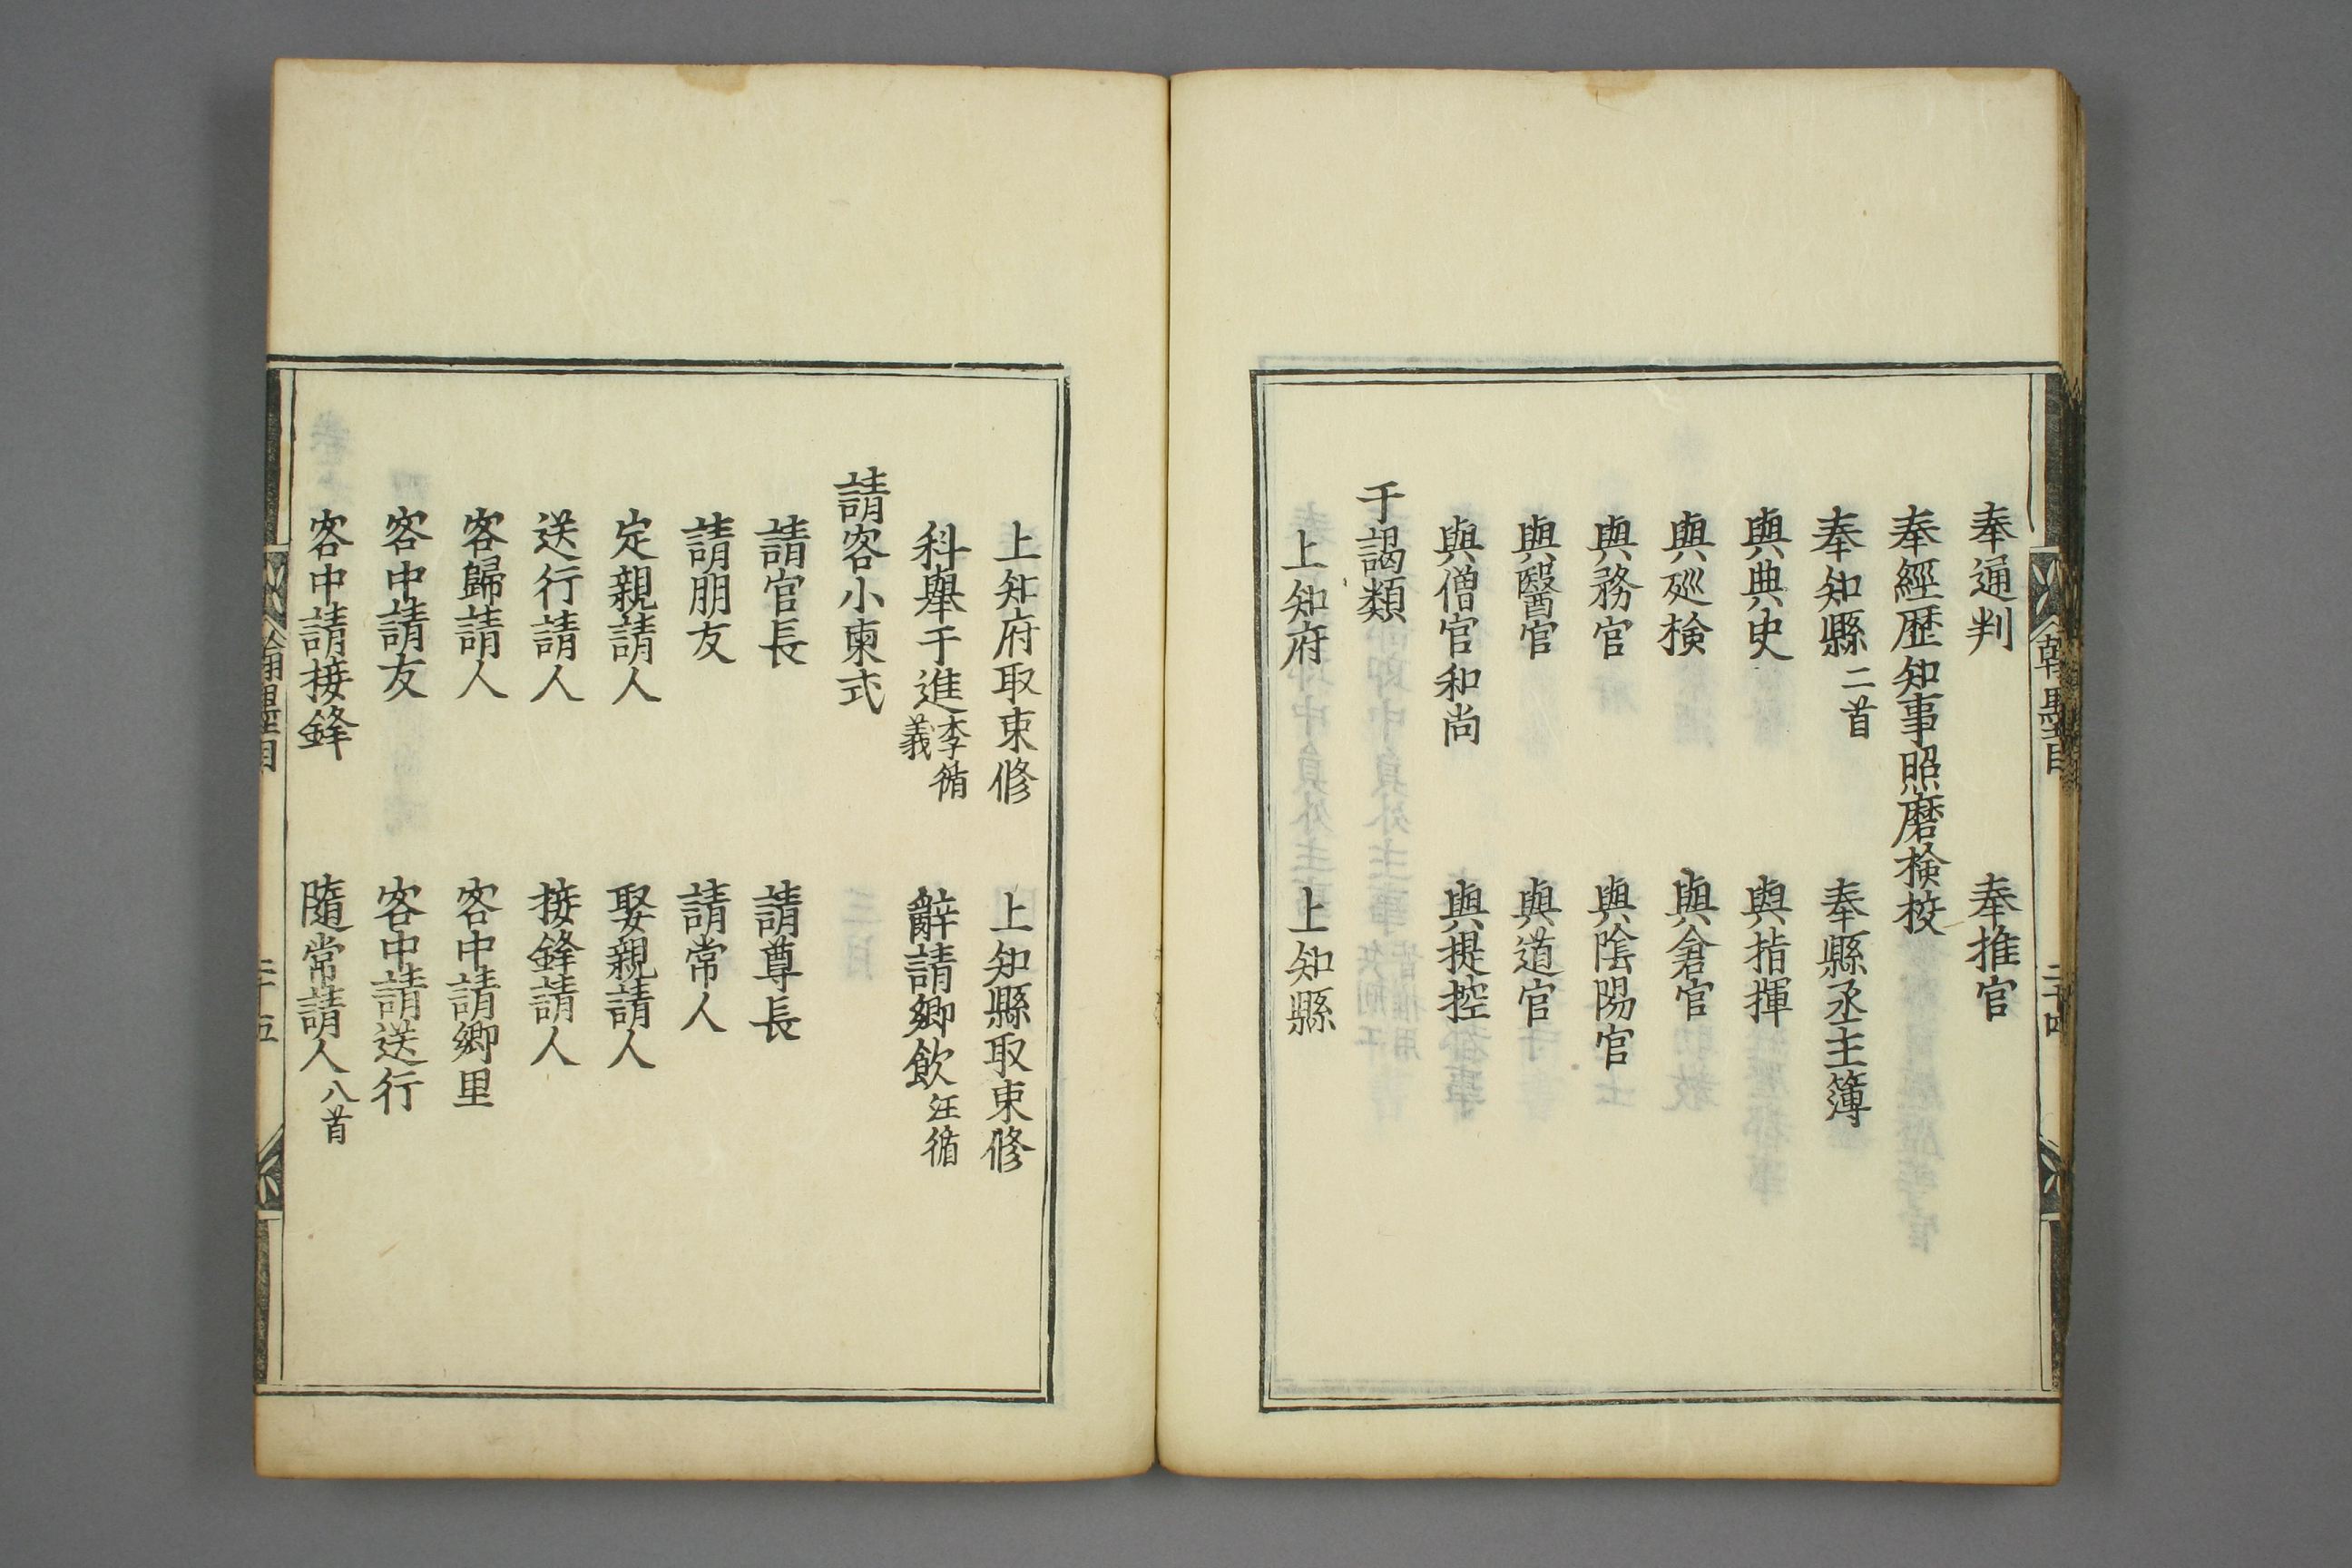 奉通判　奉推官
奉經歷知事照磨檢校
奉知縣二首　奉縣丞主簿
與典史　與指揮
與廵檢　與倉官
與務官　與陰陽官
與醫官　與道官
與僧官和尚　與提控
干謁類
上知府　上知縣
上知府取束修　上知縣取束修
科舉干進李循義　辭請鄉飲汪循
請客小柬式
請官長　請尊長
請朋友　請常人
定親請人　娶親請人
送行請人　接鋒請人
客歸請人　客中請鄉里
客中請友　客中請送行
客中請接鋒　隨常請人八首
翰墨目